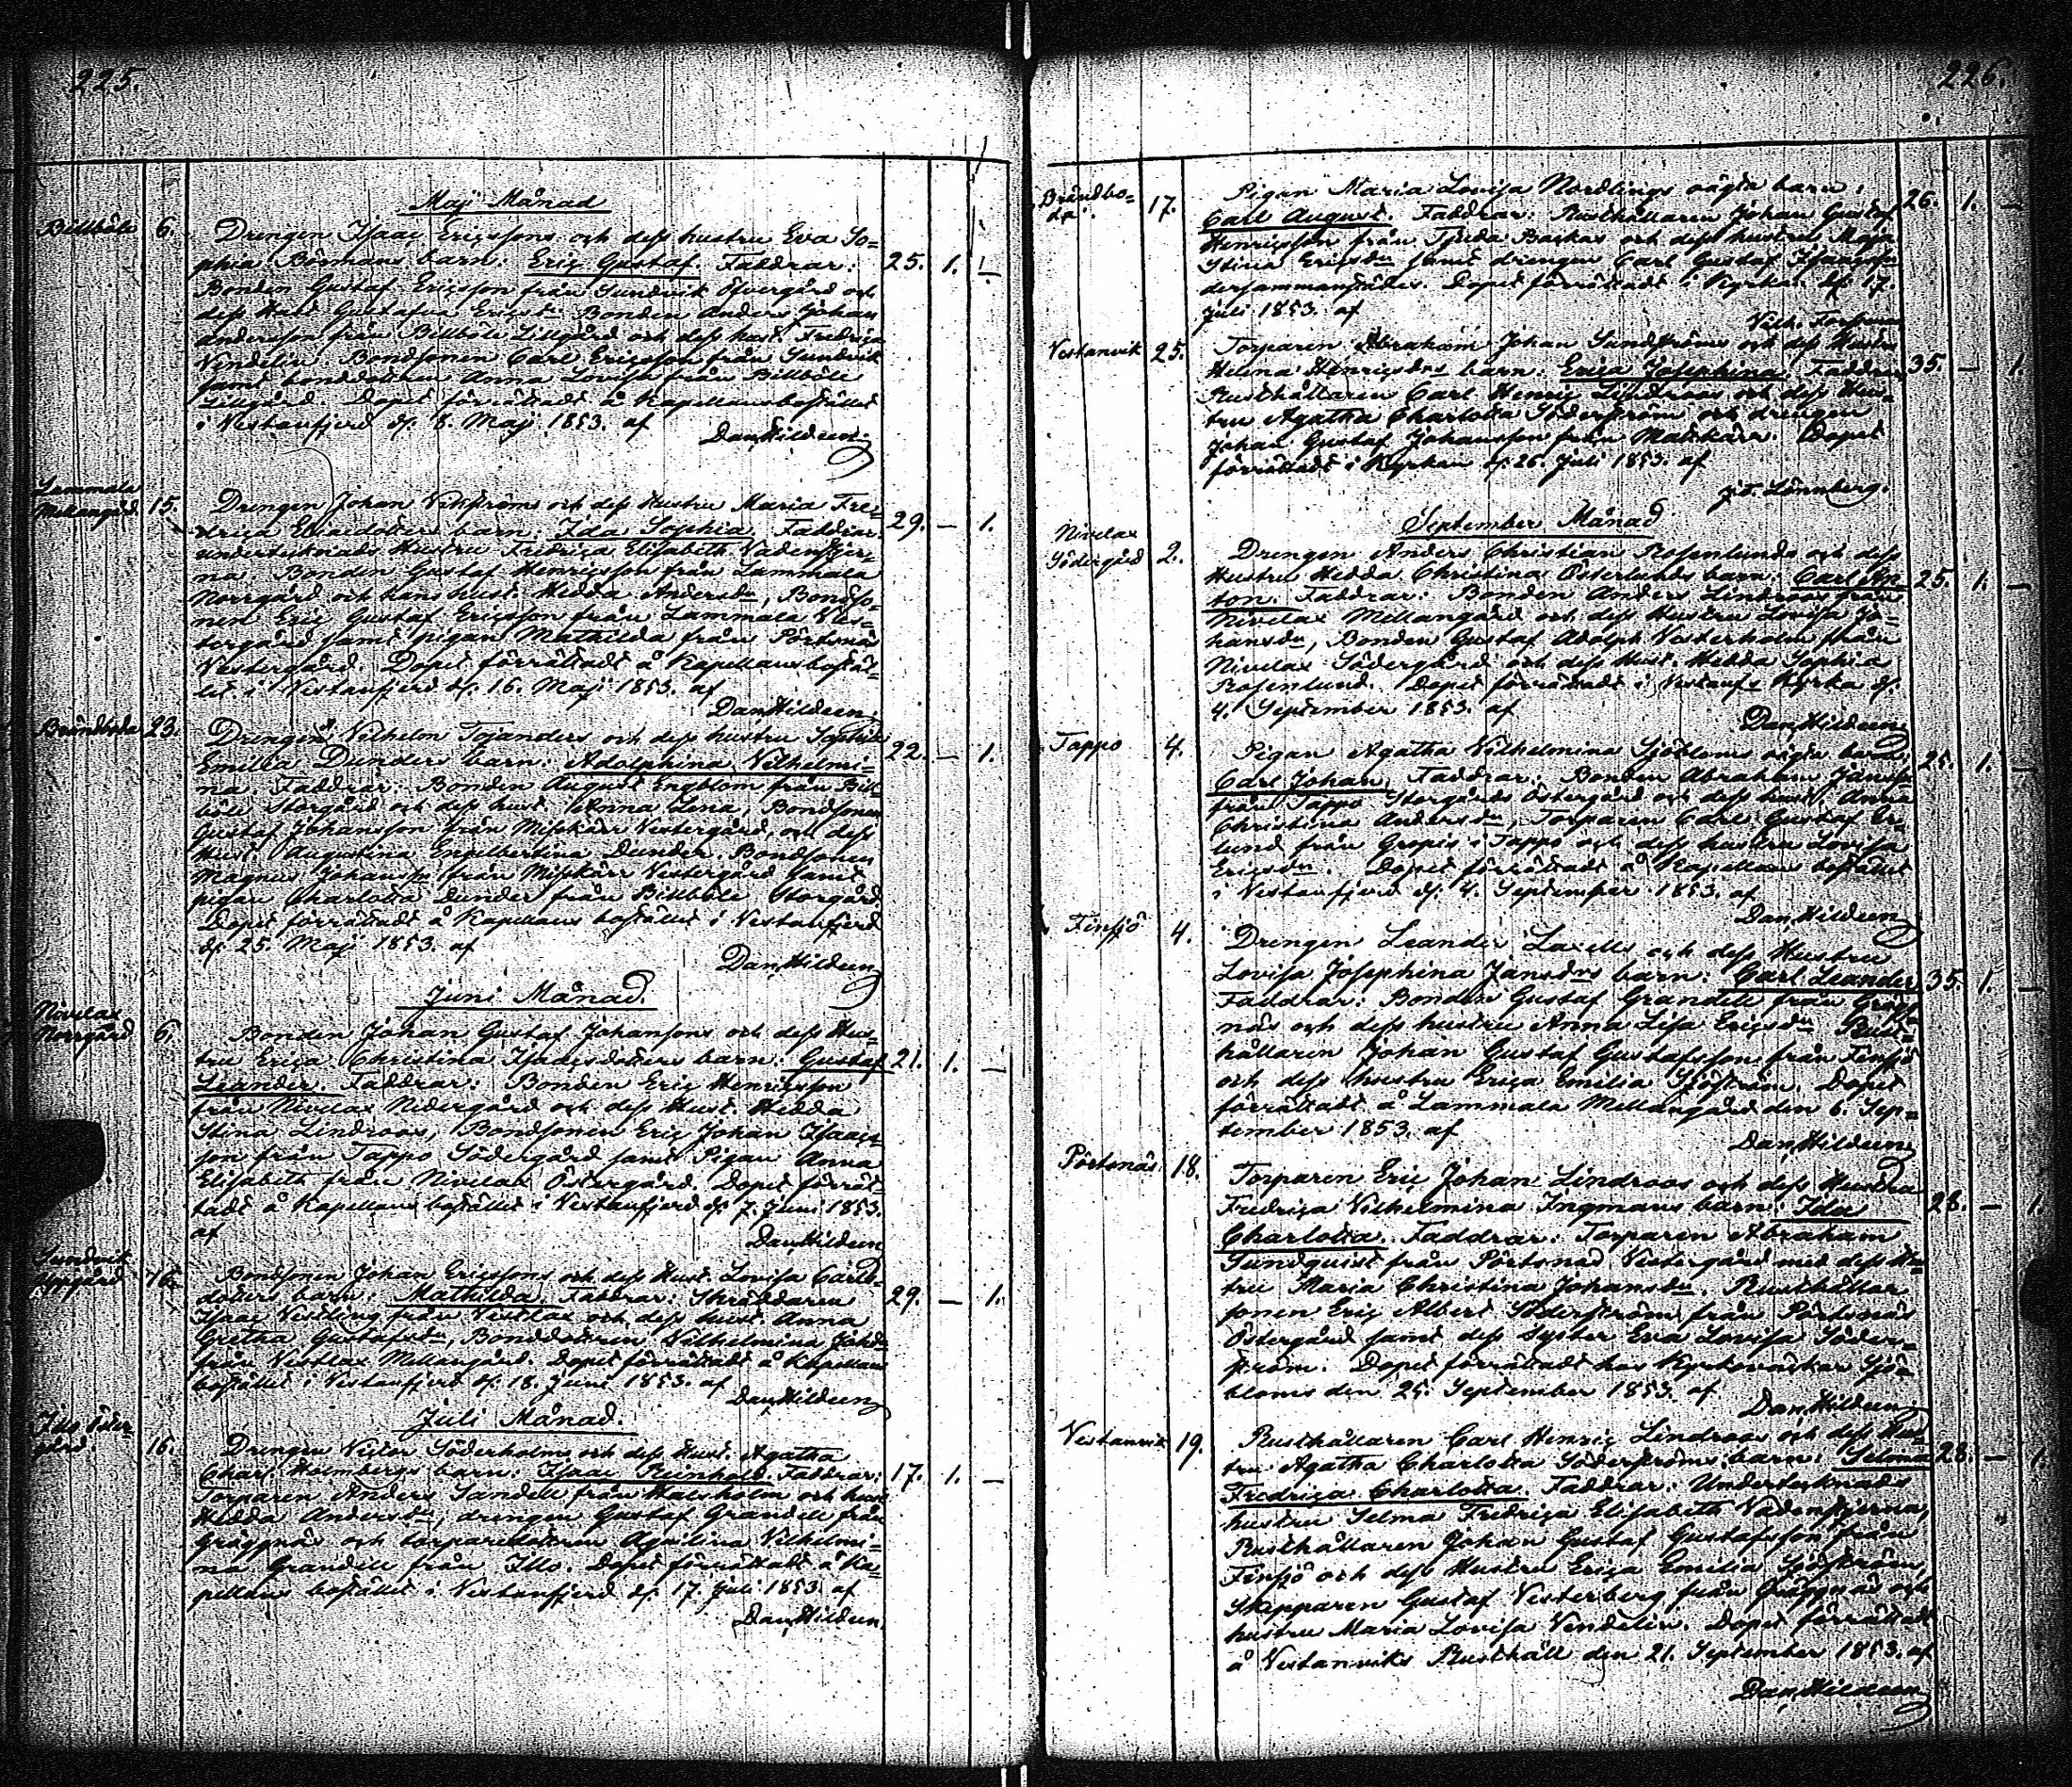 225.
Maji Månad
Billböle 6.
Drengen Isaac Ericssons och dess hustru Eva So=
phia Bömans barn: Eric Gustaf Faddrar: 25. 1. —
Bonden Gustaf Ericsson från Sundvik Öfvergård och
dess Hust Gustafva Ericsdr Bonden Anders Johan
Andersson från Billböle Lillgård och dess hust. Fredrica
Vendelin. Bondsonen Carl Ericsson från Sundvik
samt bonddottren Anna Lovisa från Billböle
Lillgård. Dopet förrättadt å Kapellansbostället
i Vestanfjerd d. 8. Maji 1853. af
Dan. Hildeen
Lammala
Mellangård 15.
Drengen Johan Vikström och dess Hustru Maria Fre=
drica barn: Ida Sophia. Faddrar: 29. — 1.
undertecknads Hustru Fredrica Elisabeth Vadenstjer=
na. Bonden Gustaf Henricsson från Lammala
Norrgård och hans hust. Hedda Andersdr, Bondso=
nen Eric Gustaf Ericsson från Lammala Ves=
tergård samt pigan Mathilda från Pörtsnäs
Vestergård. Dopet förrättadt å Kapellansbostäl=
let i Vestanfjerd d. 16. Maji 1853. af
Dan. Hildeen
Brändboda 23.
Drengen Vilhelm Tojanders och dess hustru Sophia
Emilia Dunders barn: Adolphina Vilhelmi= 22. — 1.
na. Faddrar: Bonden August Engblom från Bill=
böle Storgård och dess hust. Anna Lena, Bondsonen
Gustaf Johansson från Misskärr Vestergård, och dess
Hust Augustina Engelbertina Dunder. Bondsonen
Magnus Johansson från Misskärr Vestergård samt
pigan Charlotta Dunder från Billböle Storgård
Dopet förrättadt å Kapellans bostället i Vestanfjerd
d. 25. Maji 1853. af
Dan. Hildeen
Juni Månad.
Nivelax
Norrgård 6.
Bonden Johan Gustaf Johansons och dess Hus=
tru Erica Christina Isacsdotters barn: Gustaf 21. 1. —
Leander. Faddrar: Bonden Eric Henricsson
från Nivelax Nedergård och dess Hust. Hedda
Stina Lindroos, Bondsonen Eric Johan Isaacs=
son från Tappo Södergård samt Pigan Anna
Elisabeth från Nivelax Östergård. Dopet förrät=
tadt å Kapellans bostället i Vestanfjerd d. 7. Juni 1853.
af
Dan. Hildeen
Sundvik
Uppgård 16.
Bondsonen Johan Ericssons och dess Hust. Lovisa Carls=
dotters barn: Mathilda. Faddrar: Skräddaren 29. — 1.
Isaac Vestling från Vestlax och dess hust. Anna
Gretha Gustafsdr, Bonddottren Vilhelmina Johdr
från Vestlax Mellangård. Dopet förrättadt å Kapellans
bostället i Vestanfjerd d. 18. Juni 1853. af
Dan. Hildeen
Juli Månad.
Illo Öster=
gård 16.
Drengen Victor Söderholms och dess Hust. Agatha
Charl. Holmbergs barn: Isaac Reinhold. Faddrar: 17. 1. —
Torparen Anders Sandell från Malsholm och hust
Hedda Andersdr, drengen Gustaf Grandell från
Gräggnäs och torparedottren Aqvilina Vilhelmi=
na Grandell från Illo. Dopet förrättadt å Ka=
pellans bostället i Vestanfjerd d. 17. Juli 1853. af
Dan. Hildeen.
226.
Brändbo=
da. 17.
Pigan Maria Lovisa Nordlings oägta barn: 26. 1. —
Carl August. Faddrar: Rusthållaren Johan Gustaf
Henricsson från Tjuda Backas och dess hustru Maja
Stina Ericsdr samt drengen Carl Gustaf Isaacsson
dersammanstädes. Dopet förrättadt i Kyrkan d. 17.
Juli 1853. af
Vestanvik 25.
Torparen Abraham Johan Sundströms och dess Hustru
Helena Henricsdrs barn: Erica Josephina. Faddrar 35. — 1.
Rusthållaren Carl Henric Lindroos och dess Hus=
tru Agatha Charlotta Söderström och drengen
Johan Gustaf Johansson från Matkärr. Dopet
förrättadt i Kyrkan d. 26. Juli 1853. af
Lönnberg.
September Månad
Nivelax
Södergård 2.
Drengen Anders Christian Rosenlunds och dess
Hustru Hedda Christina Österlunds barn: Carl An= 25. 1. —
ton. Faddrar: Bonden Anders Lindroos från
Nivelax Mellangård och dess Hustru Lovisa Jo=
hansdr, Bonden Gustaf Adolph Vesterholm från
Nivelax Södergård och dess Hust. Hedda Sophia
Rosenlund. Dopet förrättadt i Vestanfs Kyrka d.
4. September 1853. af
Dan. Hildeen
Tappo 4.
Pigan Agatha Vilhelmina Sjöbloms oägta barn 25. 1. —
Carl Johan. Faddrar: Bonden Abraham Jansson
från Tappo Storgårds Östergård och dess hust. Anna
Christina Andersdr, Torparen Carl Gustaf Er=
lund från Gropis i Tappo och dess hustru Lovisa
Ericsdr. Dopet förrättadt å Kapellans bostället
i Vestanfjerd d. 4. September 1853. af
Dan. Hildeen
Finsjö 4.
Drengen Leander Laxells och dess Hustru
Lovisa Josephina Jansdrs barn: Carl Leander 35. 1. —
Faddrar: Bonden Gustaf Grandell från
näs och dess hustru Anna Lisa Ericsdr Rust=
hållaren Johan Gustaf Gustafsson från Finsjö
och dess hustru Erica Emilia Sjöström. Dopet
förrättadt å Lammala Mellangård den 6. Sep=
tember 1853. af
Dan. Hildeen
Pörtsnäs 18.
Torparen Eric Johan Lindroos och dess Hustru
Fredrica Vilhelmina Ingmans barn: Ida 28. — 1.
Charlotta. Faddrar: Torparen Abraham
Sundquist från Pörtsnäs Vestergård med dess Hus=
tru Maria Christina Johansdr. Rusthållar
sonen Eric Albert Söderström från Pörtsnäs
Östergård samt dess Syster Eva Lovisa Söder=
ström. Dopet förrättadt hos Kyrkovärkar Sjö=
bloms den 25. September 1853. af
Dan. Hildeen
Vestanvik 19.
Rusthållaren Carl Henric Lindroos och dess Hus=
tru Agatha Charlotta Söderströms barn: Selma 28. — 1.
Fredrica Charlotta. Faddrar: Undertecknads
hustru Selma Fredrica Elisabeth Vadenstjerna,
Rusthållaren Johan Gustaf Gustafsson från
Finsjö och dess Hustru Erica Emilia Sjöström,
Skepparen Gustaf Vesterberg från Gräggnäs och
hustru Maria Lovisa Vendelin. Dopet förrättadt
å Vestanviks Rusthåll den 21. September 1853. af
Dan. Hildeen